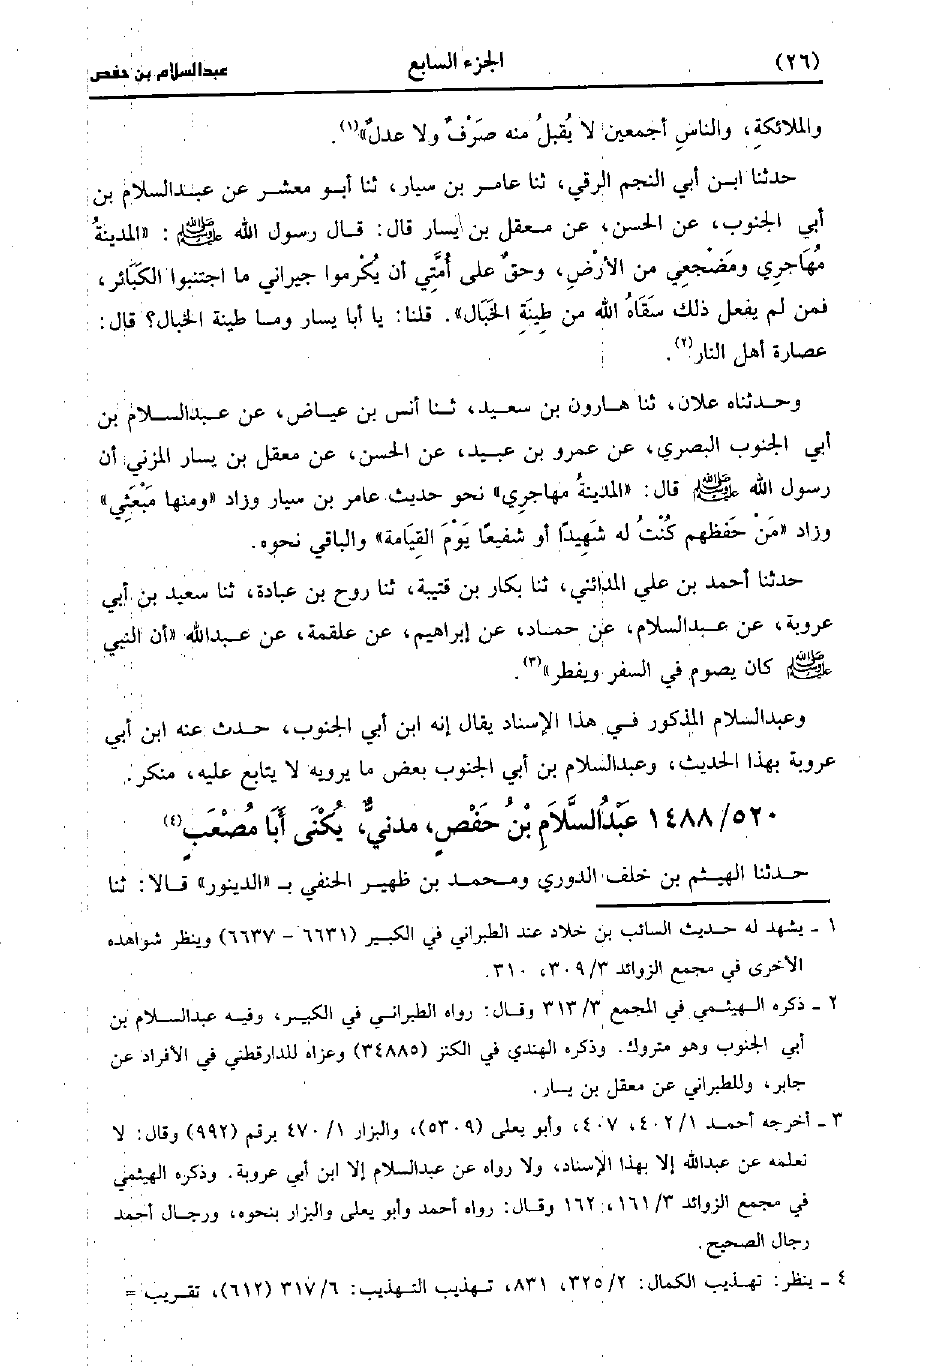 (٢٦) الجزء السابع عبدالسلام بن حفص
والملائكةِ، والناسِ أجمعين لا يُقبلُ منه صَرْفٌ ولا عدلٌ»(١).
حدثنا ابن أبي النجم الرقي، ثنا عامر بن سيار، ثنا أبو معشر عن عبدالسلام بن
أبي الجنوب، عن الحسن، عن معقل بن يسار قال: قال رسول الله ﷺ: «المدينةُ
مُهَاجري ومَضْجعي من الأرْضِ، وحقٌ على أُمَّتي أن يُكْرموا جيراني ما اجتنبوا الكَبَائر،
فمن لم يفعل ذلك سَقَاهُ الله من طِينَةِ الخَبَال». قلنا: يا أبا يسار وما طينة الخبال؟ قال:
عصارة أهل النار(٢).
وحدثناه علان، ثنا هارون بن سعيد، ثنا أنس بن عياض، عن عبدالسلام بن
أبي الجنوب البصري، عن عمرو بن عبيد، عن الحسن، عن معقل بن يسار المزني أن
رسول الله ﷺ قال: «المدينةُ مهاجري» نحو حديث عامر بن سيار وزاد «ومنها مَبْعَثِي»
وزاد «مَنْ حَفظهم كُنْتُ له شَهِيدًا أو شفيعًا يَوْمَ القِيَامة» والباقي نحوه.
حدثنا أحمد بن علي المدائني، ثنا بكار بن قتيبة، ثنا روح بن عبادة، ثنا سعيد بن أبي
عروبة، عن عبدالسلام، عن حماد، عن إبراهيم، عن علقمة، عن عبدالله «أن النبي
ﷺ كان يصوم في السفر ويفطر»(٣).
وعبدالسلام المذكور في هذا الإسناد يقال إنه ابن أبي الجنوب، حدث عنه ابن أبي
عروبة بهذا الحديث، وعبدالسلام بن أبي الجنوب بعض ما يرويه لا يتابع عليه، منكر.
١٤٨٨/٥٢٠ عَبْدُالسَّلَامِ بْنُ حَفْصٍ، مدنيٌّ، يُكْنَى أَبَا مُصْعَبٍ(٤)
حدثنا الهيثم بن خلف الدوري ومحمد بن ظهير الحنفي بـ «الدينور» قالا: ثنا
١ ـ يشهد له حديث السائب بن خلاد عند الطبراني في الكبير (٦٦٣١ – ٦٦٣٧) وينظر شواهده
الأخرى في مجمع الزوائد ٣٠٩/٣، ٣١٠.
٢ ـ ذكره الهيثمي في المجمع ٣١٣/٣ وقال: رواه الطبراني في الكبير، وفيه عبدالسلام بن
أبي الجنوب وهو متروك. وذكره الهندي في الكنز (٣٤٨٨٥) وعزاه للدارقطني في الأفراد عن
جابر، وللطبراني عن معقل بن يسار.
٣ ـ أخرجه أحمد ٤٠٢/١، ٤٠٧، وأبو يعلى (٥٣٠٩)، والبزار ٤٧٠/١ برقم (٩٩٢) وقال: لا
نعلمه عن عبدالله إلا بهذا الإسناد، ولا رواه عن عبدالسلام إلا ابن أبي عروبة. وذكره الهيثمي
في مجمع الزوائد ١٦١/٣، ١٦٢ وقال: رواه أحمد وأبو يعلى والبزار بنحوه، ورجال أحمد
رجال الصحيح.
٤ ـ ينظر: تهذيب الكمال: ٣٢٥/٢، ٨٣١، تهذيب التهذيب: ٣١٧/٦ (٦١٢)، تقريب =